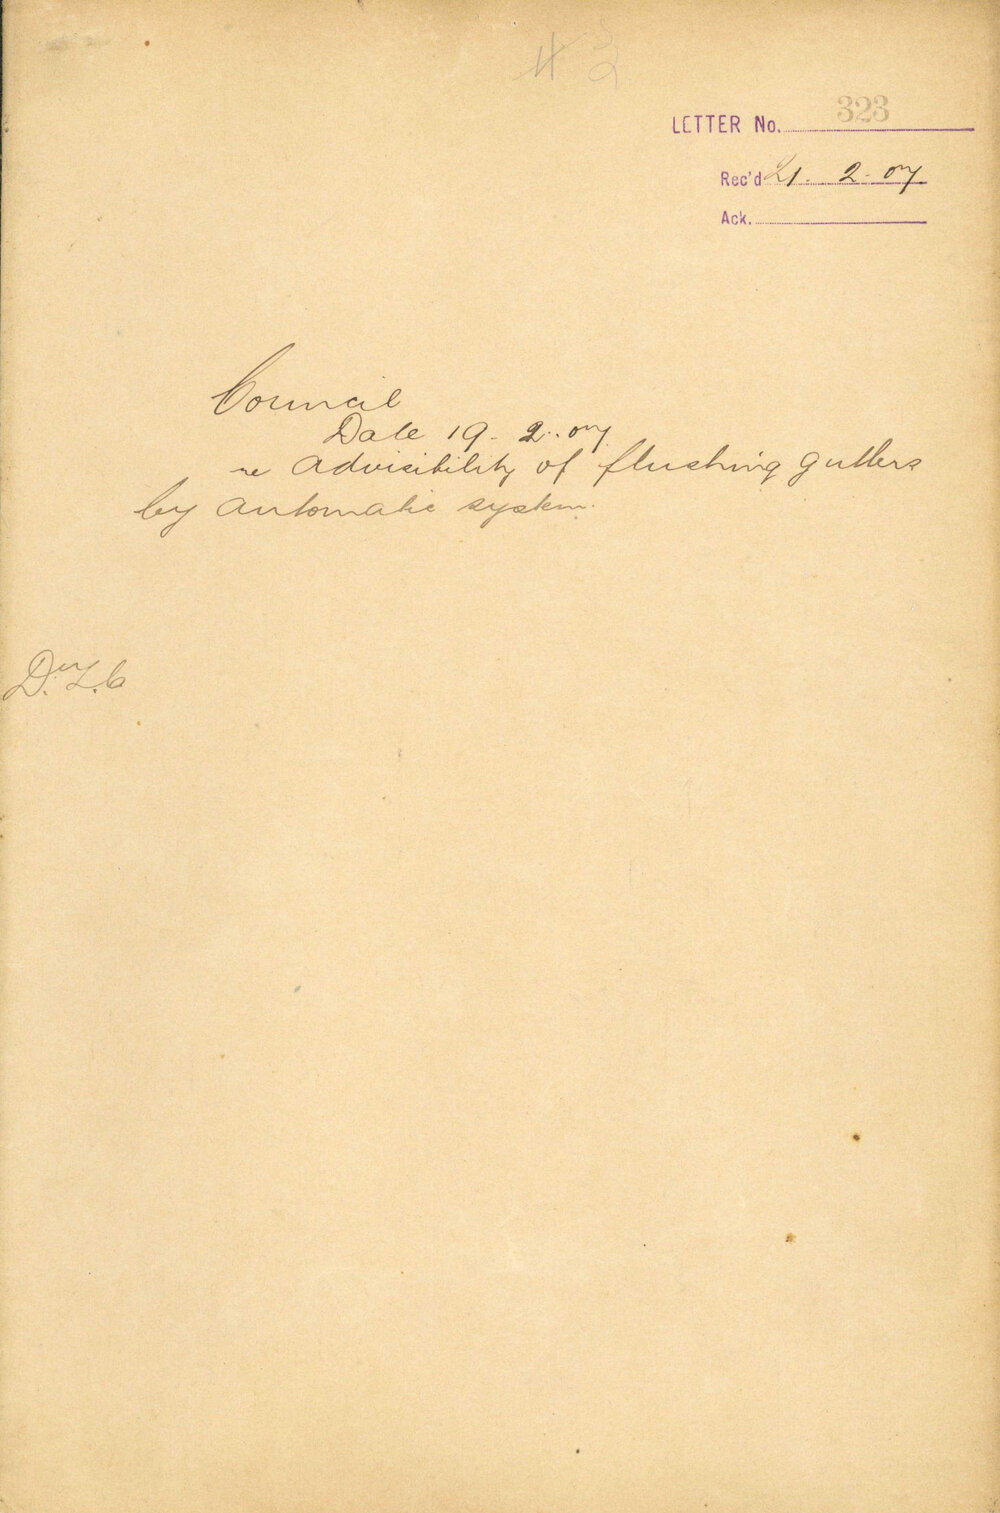 323
LETTER No.
Rec'd 21. 2. 07.
Ack.
Council
Date 19. 2. 07
re advisibility of flushing gutters
by automatic system.